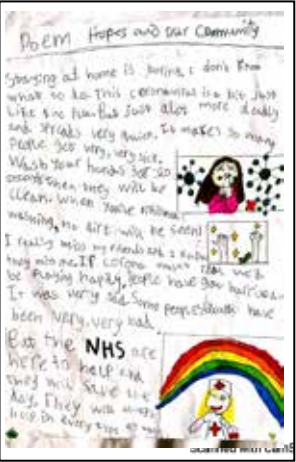 Poem Hopes and our Community
Staying at home is boring I don't know
what to do. This coronavirus is a bit just
like the flu. But just alot more deadly
and spreads very quick. It makes so many
people get very, very sick.
Wash your hands for 20
seconds then they will be
clean. When you've finished
washing, no dirt will be seen!
I really miss my friends and I know
they miss me. If corona wasn't real we'd
be playing happily. People have gone
It was very sad. Some people's have
been very, very bad.
But the NHS are
here to help and
they will save the
day. They will always
help in every
Scanned with CamS